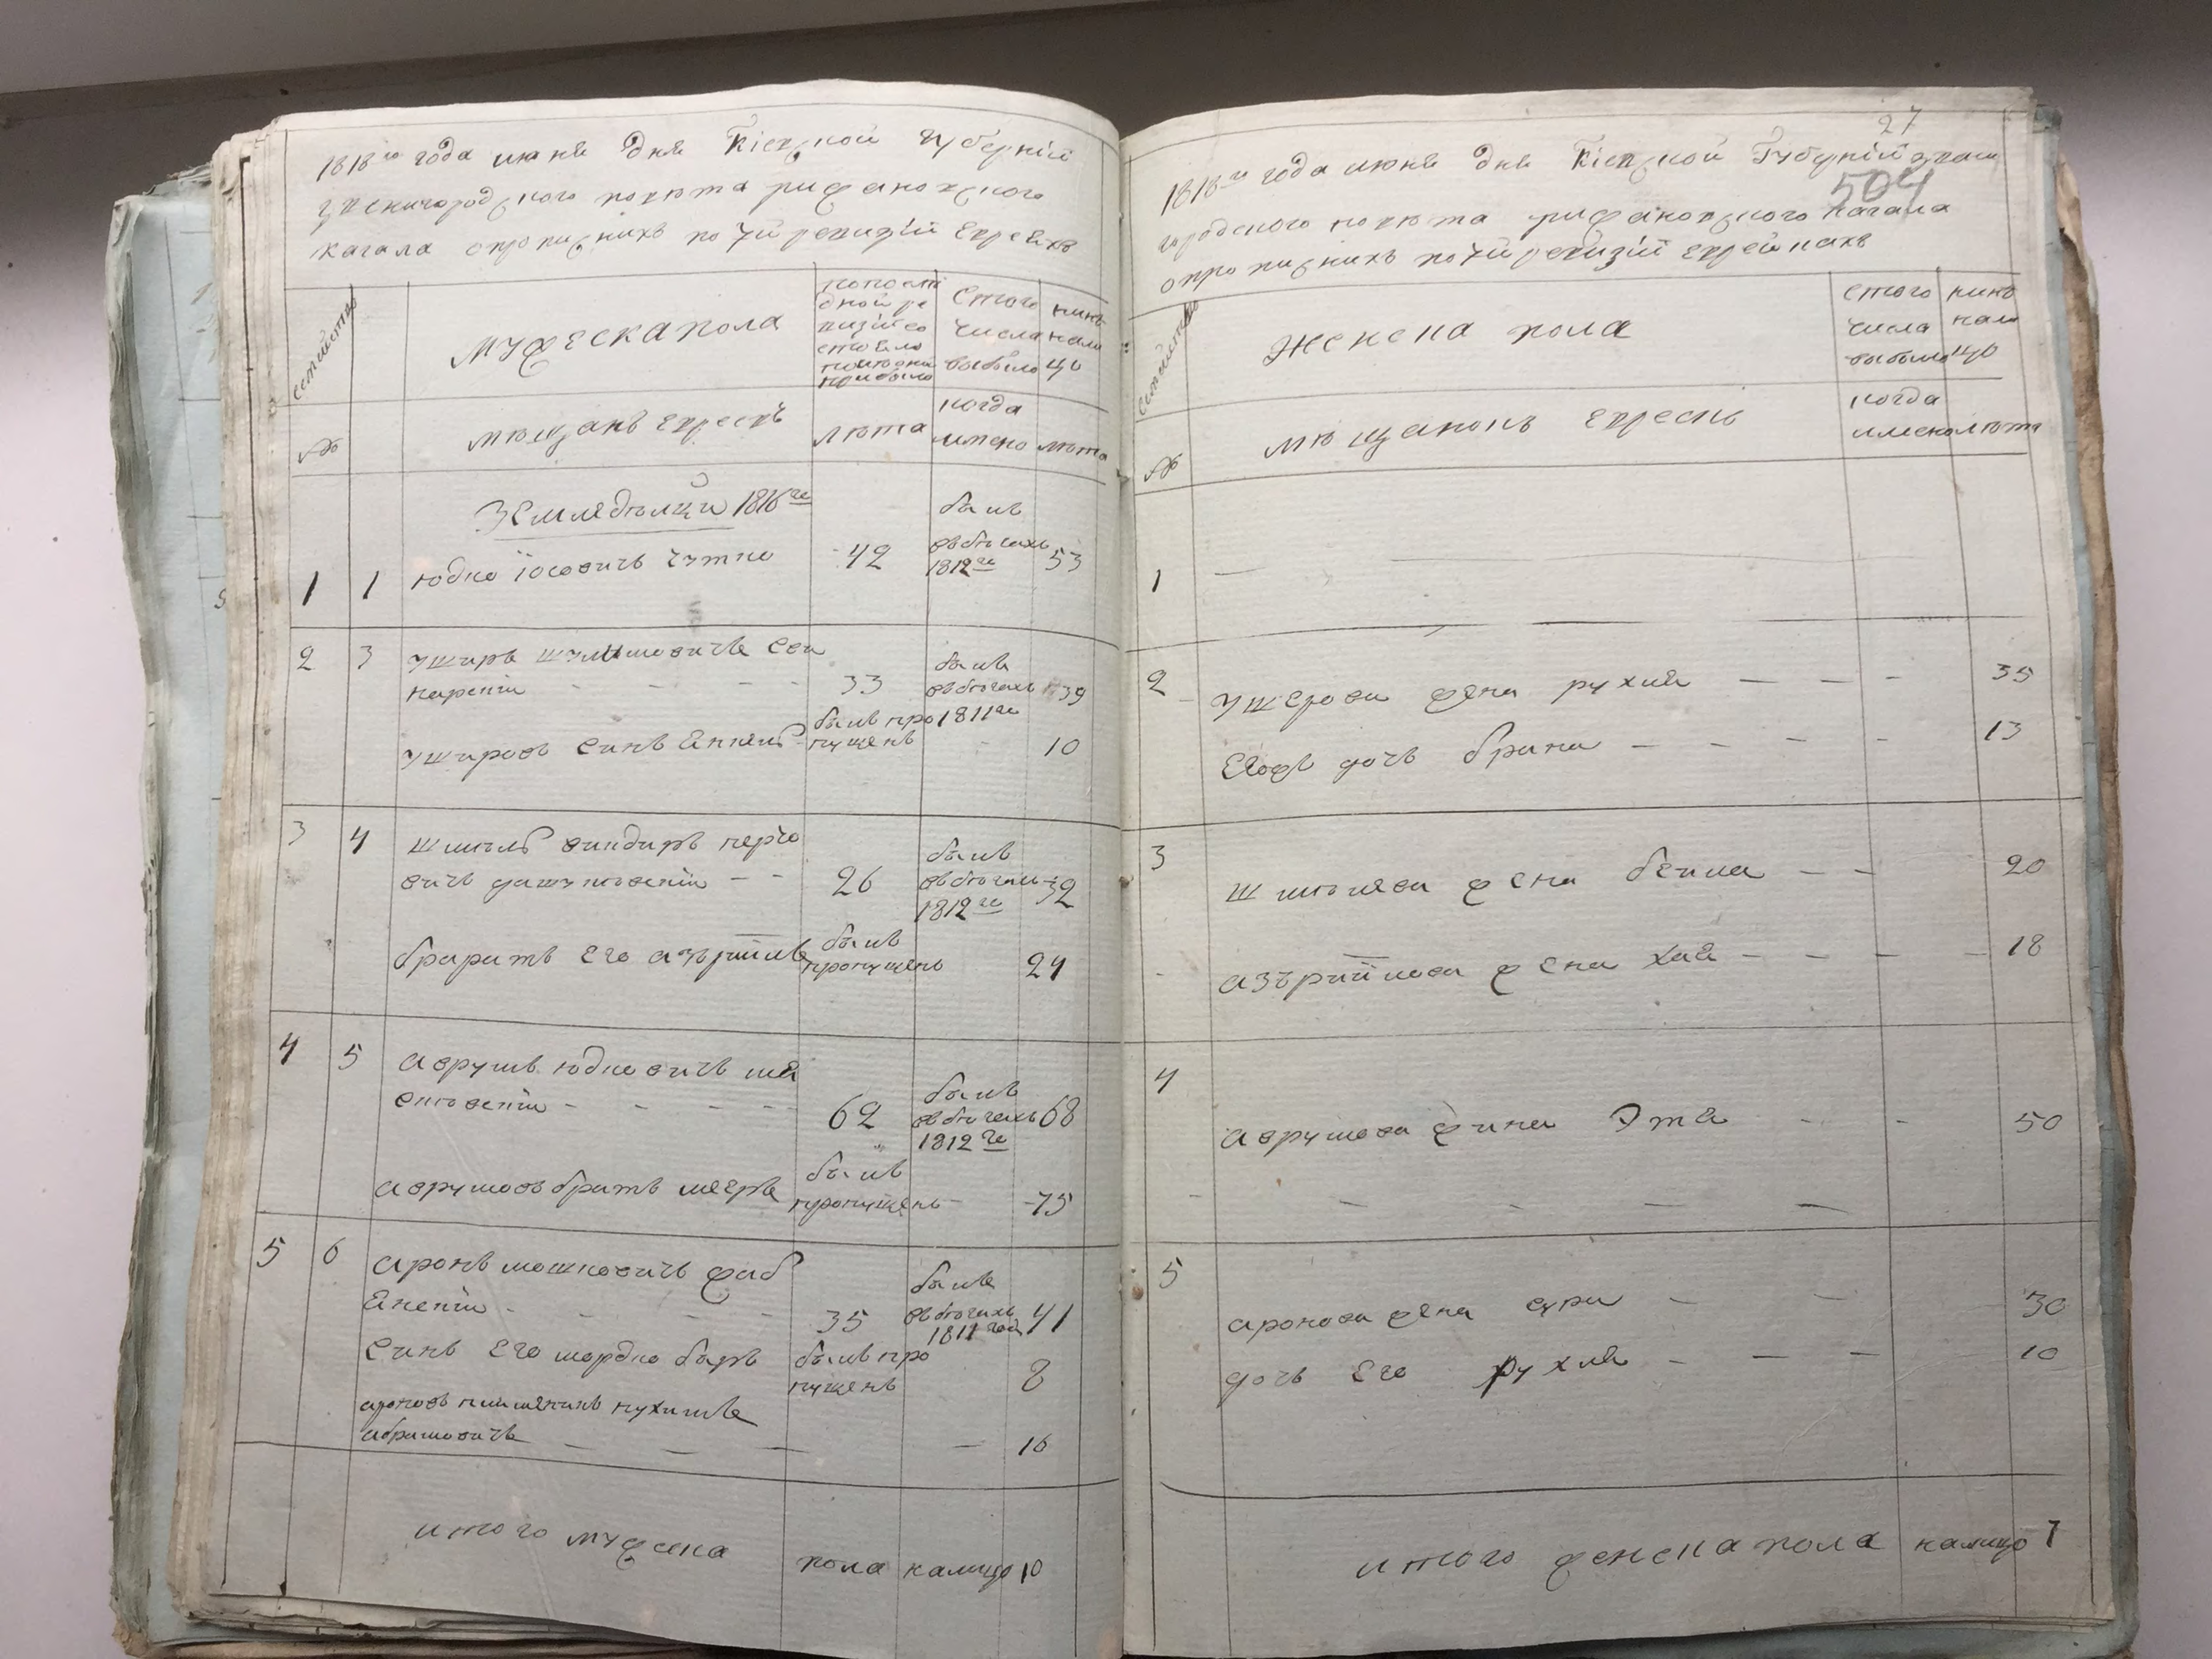 1818го года июня дня Кіевской губерніи
звенигородского повета рижановского
кагала о прописних по 7й ревизіи евреяхъ
семейства
мужеска пола
по после
дной ре
визіи со
стояло
и после оной
прибыло
с того
числа
выбыло
ныне
нали
цо
№
мещанъ евреевъ
лета
когда
имено
лета
Земледельци 1816го
1 1 юдко іосовичъ чутко 42
былъ
въ бегахъ
1812го
53
2 3 уширъ шулимовичъ
33
былъ
въ бегахъ
1811го
39
ушировъ синъ
былъ про
пущенъ
10
3 4 шмиль
26
былъ
въ бегахъ
1812го
32
братъ его азърииль
былъ
пропущенъ
24
4 5 аврумъ юдковичъ
62
былъ
въ бегахъ
1812го
68
аврумовъ братъ меэръ
былъ
пропущенъ
75
5 6 аронъ мошковичъ
35
былъ
въ бегахъ
1811года
41
синъ его мордко беръ
былъ про
пущенъ
8
ароновъ племеникъ нухимъ
абрамовичъ
16
итого мужеска пола налицо 10
27
504
1818го года июня дня Кіевской Губерніи звени
городского повета рижановского кагала
о прописних по 7й ревизіи еврейкахъ
семейства
женска пола
с того
числа
выбыло
ныне
нали
цо
№
мещанокъ евреекъ
когда
имено
лета
1
2 ушерова жена рухля 35
Егожъ дочъ брана 13
3 шмилева жена бейла 20
азърийлова жена хая 18
4 аврумова жина Эта 50
5 аронова жена сура 30
дочъ его рухля 10
итого женска пола налицо 7